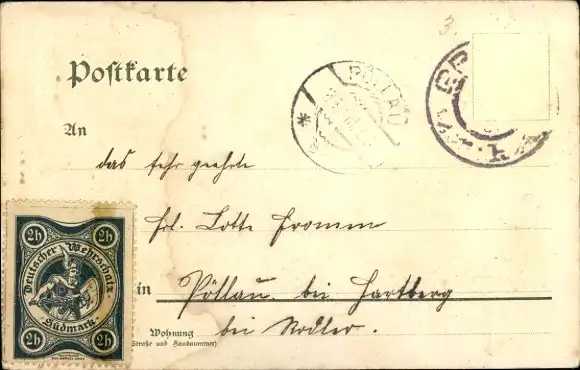 3.
Postkarte
PÖLLAU
An
das sehr geehrte
Frl. Lotte Fromm
2h 2h
Deutscher Wehrschatz.
Südmark.
2h 2h
in Pöllau bei Hartberg
Wohnung
(Straße und Hausnummer)
bei Nodler.